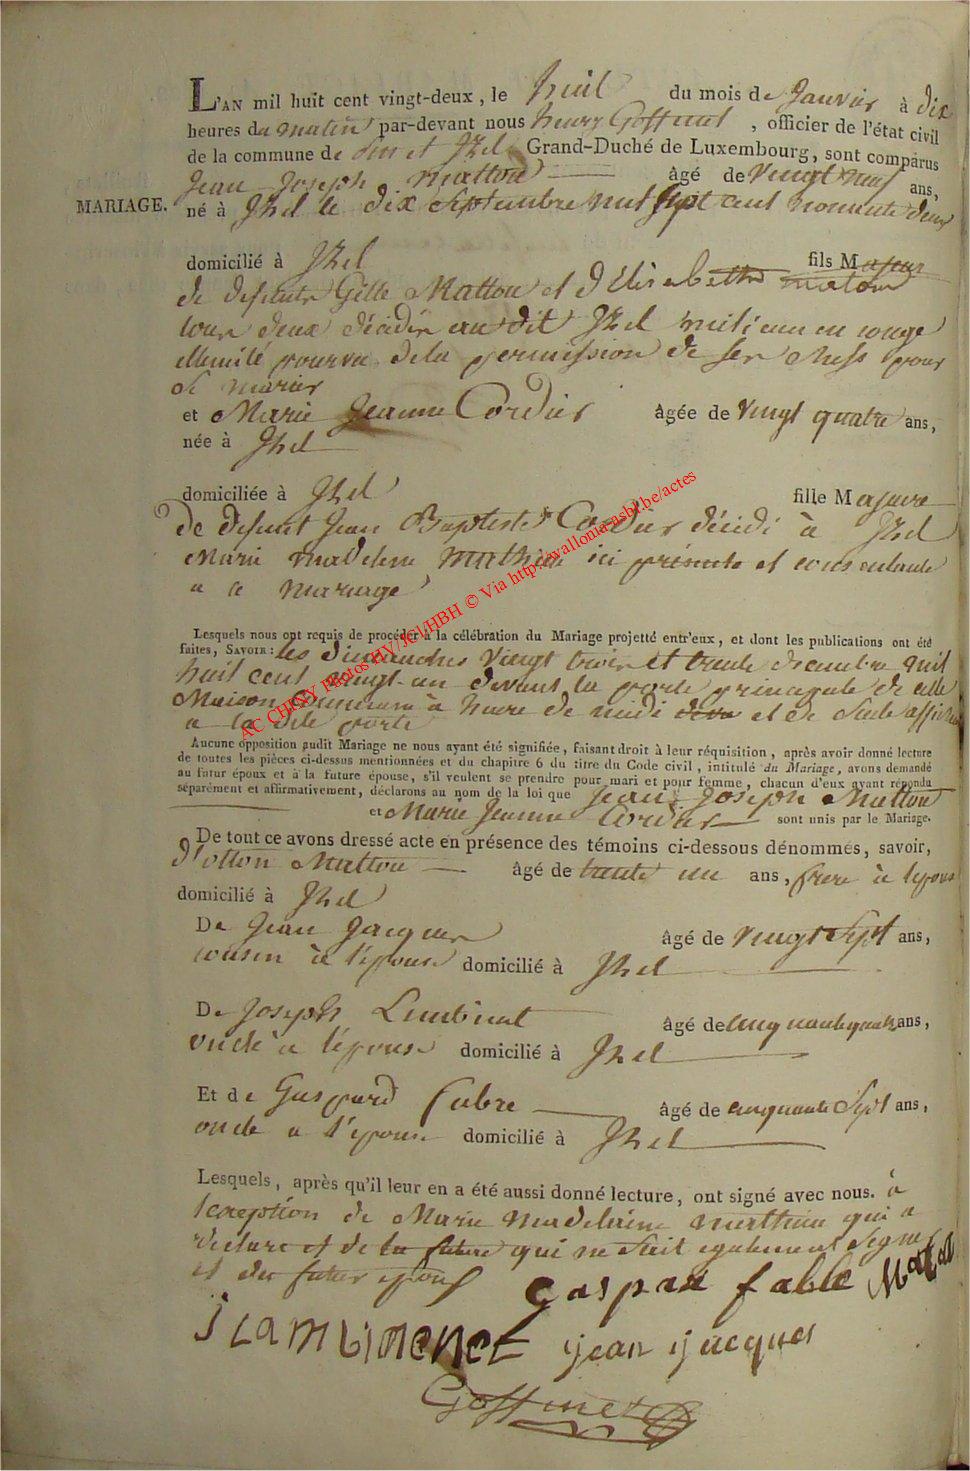 L'AN mil huit cent vingt-deux, le huit du mois de Janvier à dix
heures du matin par-devant nous henry Goffinet, officier de l'état civil
de la commune de et Jzel Grand-Duché de Luxembourg, sont comparus
Jean Joseph Mattou âgé de vingt neuf ans,
MARIAGE.
né à Jzel le dix Septembre mil sept cent nonante deux
domicilié à Jzel fils Majeur
de défunts Gille Mattou et d'Elisabethe
tous deux décédés au dit Jzel milicien en congé
illimité pourvu de la permission de ses chefs pour
se marier
et Marie Jeanne Cordier âgée de vingt quatre ans,
née à Jzel
domiciliée à Jzel fille Majeure
De defunt Jean Baptiste Cordier décédé à Jzel
Marie madeleine mathieu ici présente et consentante
a ce mariage
AC CHINY Photos HV/JCl/HBH © Via http://wallonia-asbl.be/actes
Lesquels nous ont requis de procéder à la célébration du Mariage projetté entr'eux, et dont les publications ont été
faites, SAVOIR: les dimanches vingt trois et trente décembre mil
huit cent vingt-un devant la porte principale de cette
Maison commune à heure de midi et de suite affichée
a la dite porte
Aucune opposition audit Mariage ne nous ayant été signifiée, faisant droit à leur réquisition, après avoir donné lecture
de toutes les pièces ci-dessus mentionnées et du chapitre 6 du titre du Code civil, intitulé du Mariage, avons demandé
au futur époux et à la future épouse, s'il veulent se prendre pour mari et pour femme, chacun d'eux ayant répondu
séparément et affirmativement, déclarons au nom de la loi que Jean Joseph Mattou
et Marie Jeanne Cordier sont unis par le Mariage.
De tout ce avons dressé acte en présence des témoins ci-dessous dénommés, savoir,
Mattou âgé de trente un ans, frere à lepoux
domicilié à Jzel
De Jean Jacques âgé de vingt Sept ans,
cousin à l'épouse domicilié à Jzel
De Joseph Lambinet âgé de cinquante quatre ans,
oncle à l'épouse domicilié à Jzel
Et de Gaspard fabre âgé de cinquante Sept ans,
oncle a l'epouse domicilié à Jzel
Lesquels, après qu'il leur en a été aussi donné lecture, ont signé avec nous. à
lexception de Marie madeleine mathieu qui a
declaré et de la future qui ne Sait egalement Signer
et du futur epoux
Gaspar fable Matou
j Lambinenet jean jacques
Goffinet